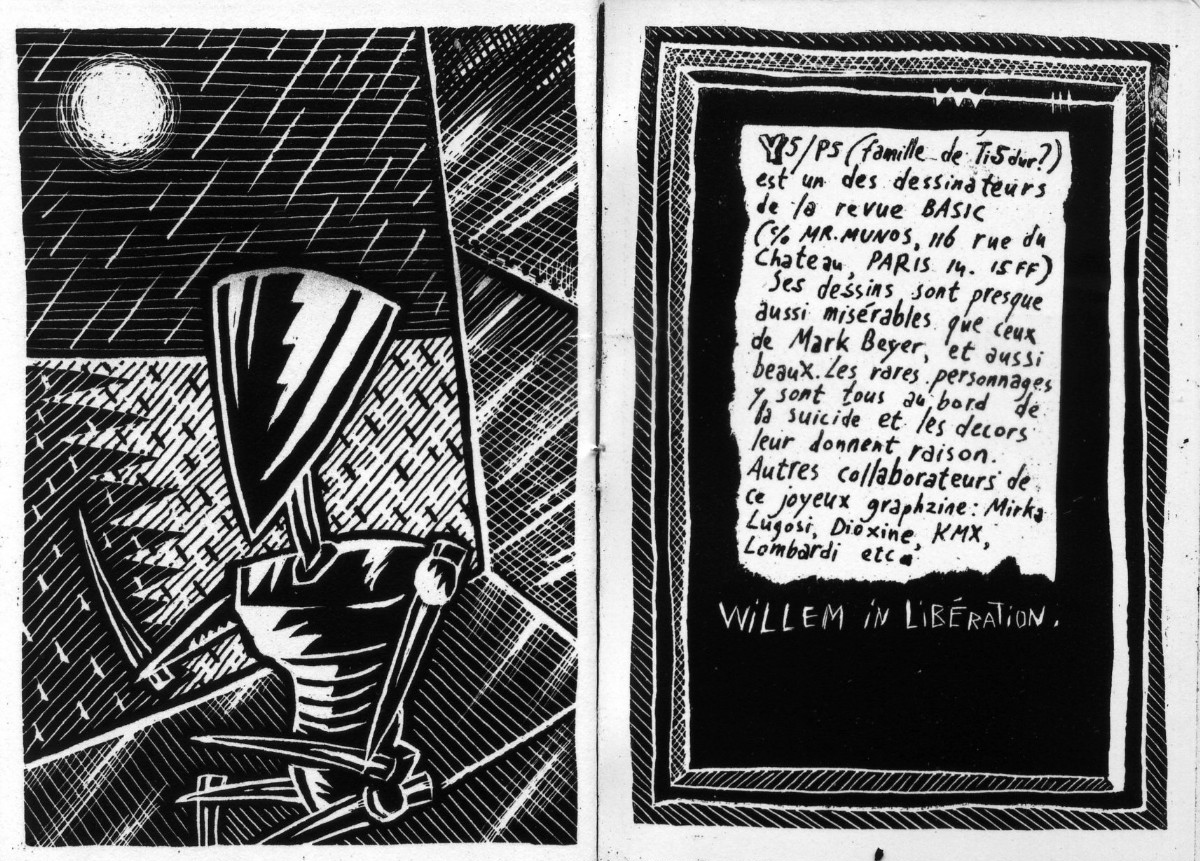 Y5/P5 (famille de Ti5dur?)
est un des dessinateurs
de la revue BASIC
(c/o MR. MUNOS, 116 rue du
Chateau, PARIS 14. 15 FF)
Ses dessins sont presque
aussi misérables que ceux
de Mark Beyer, et aussi
beaux. Les rares personnages
y sont tous au bord de
la suicide et les decors
leur donnent raison.
Autres collaborateurs de
ce joyeux graphzine: Mirka
Lugosi, Dioxine, KMX,
Lombardi etc.
WILLEM iN LIBÉRATION.